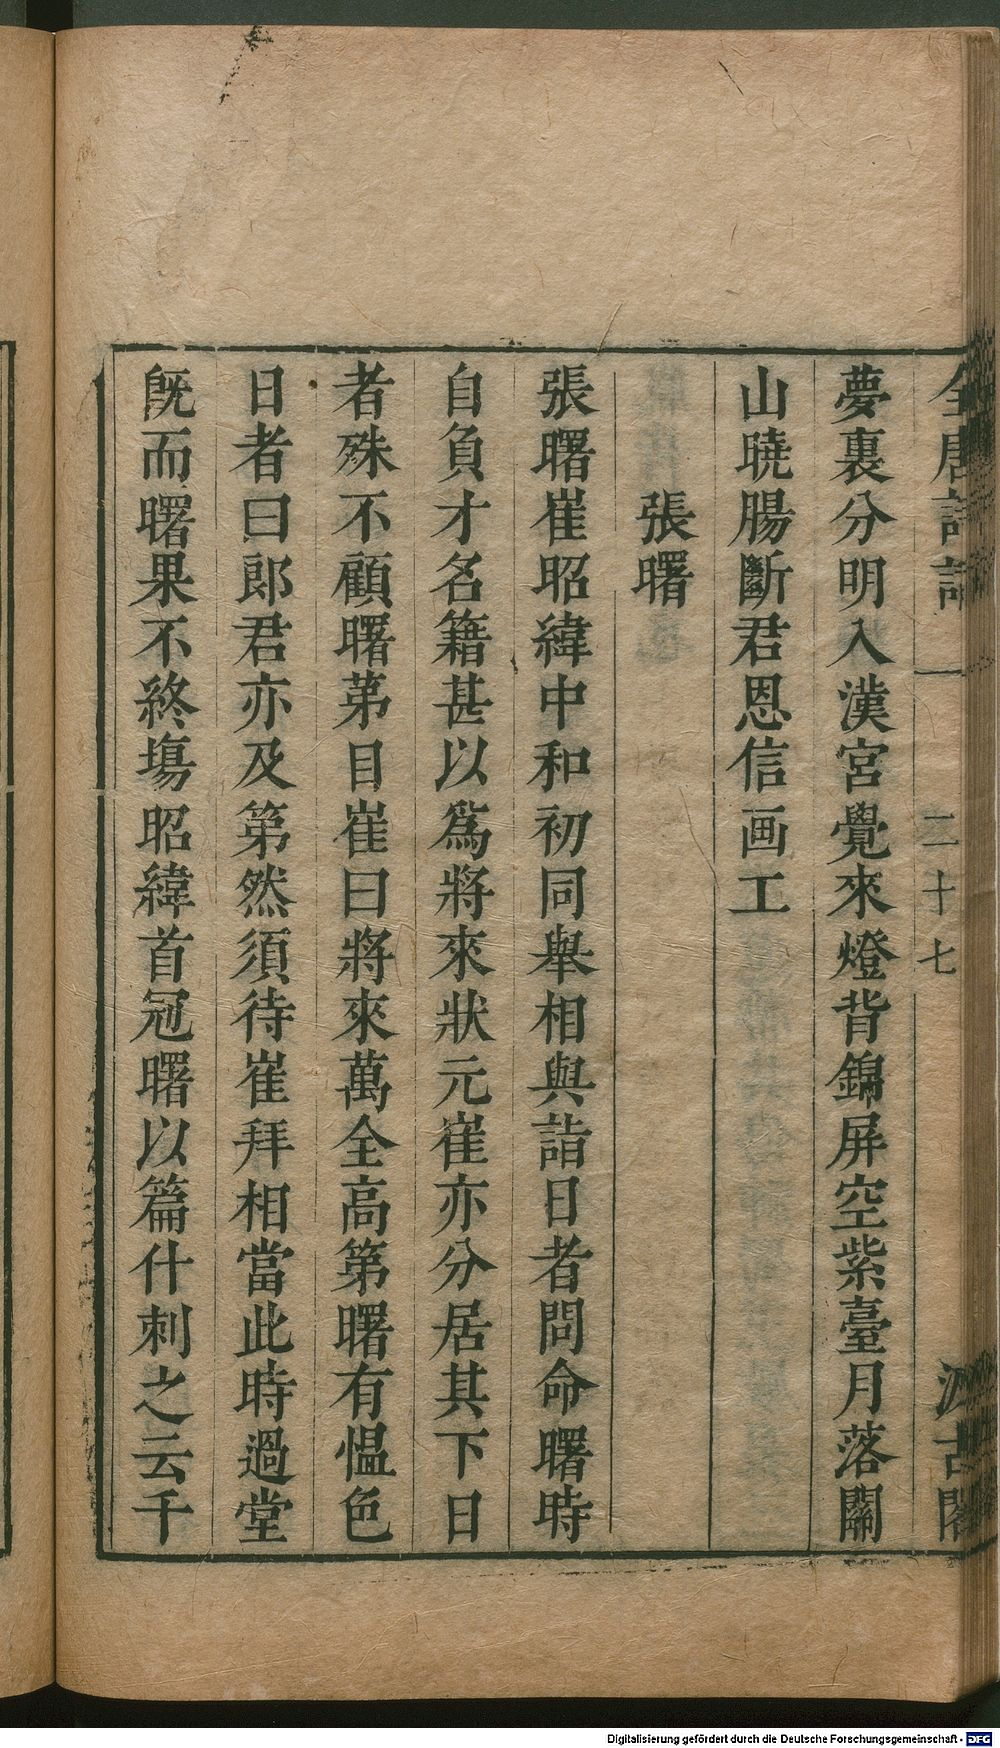 全唐詩話
二十七
汲古閣
夢裏分明入漢宮覺來燈背錦屏空紫臺月落關
山曉腸斷君恩信画工
張曙
張曙崔昭緯中和初同舉相與詣日者問命曙時
自負才名籍甚以爲將來狀元崔亦分居其下日
者殊不顧曙苐目崔曰將來萬全高第曙有慍色
日者曰郎君亦及第然須待崔拜相當此時過堂
旣而曙果不終塲昭緯首冠曙以篇什刺之云千
Digitalisierung gefördert durch die Deutsche Forschungsgemeinschaft - DFG